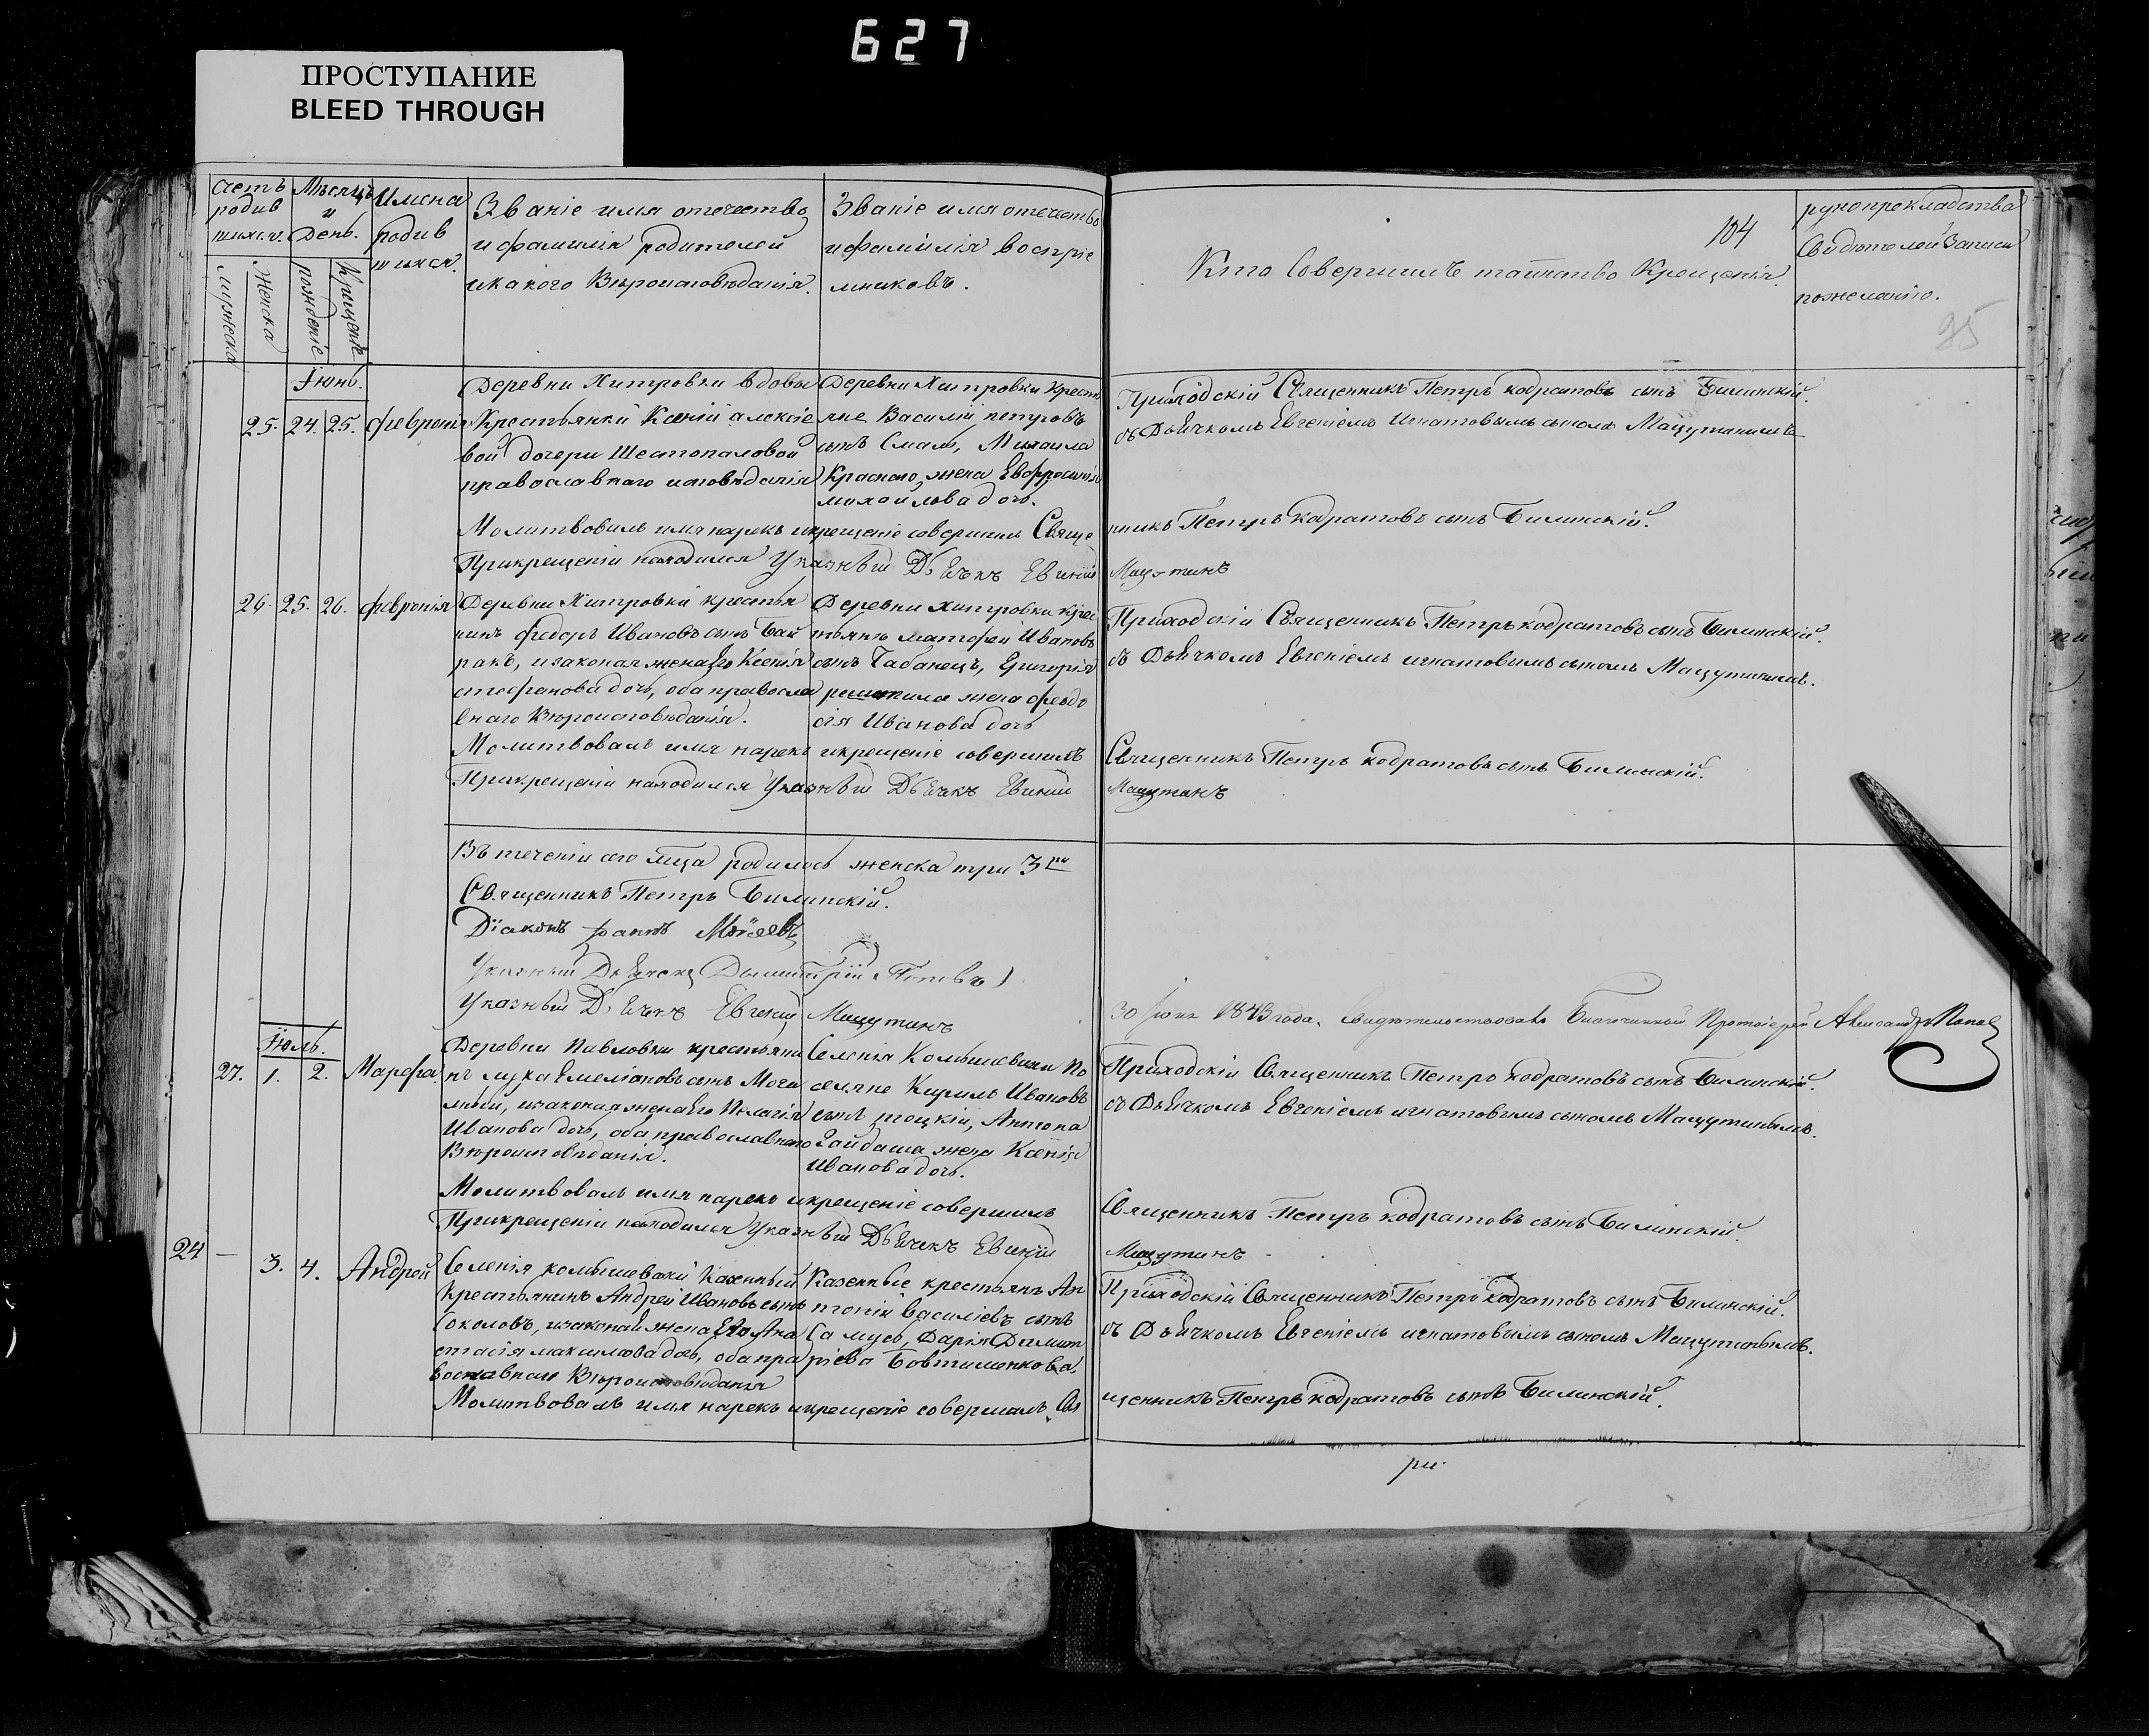 627
ПРОСТУПАНИЕ
BLEED THROUGH
Счетъ родив шихся.
Мѣсяцъ и День.
Имена родив шихся.
Званіе имя отечество
и фамилія родителей
икакого Вѣроисповѣданія.
Званіе имя отечество
и фамилія воспріе
мниковъ.
Кто Совершилъ таинство Крещенія.
104
рукоприкладство
Свидѣтелей Записи
пожеланію.
95
мужеска
женска
рожденіе
Крещеніе
Іюнь.
25. 24. 25. Февронія
Деревни Хитровки вдовы
Крестьянки Ксеніи алексіе
вой дочери Шестопаловой
православнаго исповѣданія
Деревни Хитровки Кресть
яне Василій петровъ
сынъ Смаль, Михаила
Краснаго жена Евфросинія
михайлова дочь.
Приходскій Священникъ Петръ кодратовъ сынъ Билинскій.
съ Дьячкомъ Евгеніемъ Игнатовымъ сыномъ Мацутинымъ
Молитвовалъ имя нарекъ икрещеніе совершилъ Свяще
нникъ Петръ кадратовъ сынъ Билинскій.
Прикрещеніи находился Указный Дьячекъ Евгеній
Мацутинъ
26. 25. 26. Февронія
Деревни Хитровки крестья
нинъ Федоръ Ивановъ сынъ Бай
ракъ, изаконая жена Его Ксенія
стефанова дочь, оба правосла
внаго Вѣроисповѣданія.
Деревни хитровки крес
тьяне матфей Ивановъ
сынъ Чабанецъ, Григорія
решетила жена Феодо
сія Иванова дочь
Приходскій Священникъ Петръ кодратовъ сынъ Билинскій.
съ Дьячкомъ Евгеніемъ игнатовымъ сыномъ Мацутинымъ.
Молитвовалъ имя нарекъ икрещеніе совершилъ
Священникъ Петръ кодратовъ сынъ Билинскій.
Прикрещеніи находился Указный Дьячекъ Евгеній
Мацутинъ
Въ теченіи сего мѣца родилось женска три 3 ри
Священникъ Петръ Билинскій.
Діаконъ Іоаннъ Моѵсеевъ
Указный Дьячекъ Дымитрій Поповъ
Указный Дьячекъ Евгеній Мацутинъ
30 Іюня 1843 года. Свидѣтельствовалъ Благочинный Протоіерей Александръ Поповъ
Іюль.
27. 1. 2. Марфа
Деревни Павловки крестьяни
нъ лука Емеліановъ сынъ Моги
изаконая жена Его Пелагія
Иванова дочь, оба православнаго
Вѣроисповѣданія.
Селенія Комышевахи По
селяне Кирилъ Ивановъ
сынъ Антона
Гайдаша жена Ксенія
Иванова дочь.
Приходскій Священникъ Петръ кодратовъ сынъ Билинскій.
съ Дьячкомъ Евгеніемъ игнатовымъ сыномъ Мацутинымъ.
Молитвовалъ имя нарекъ икрещеніе совершилъ
Священникъ Петръ кодратовъ сынъ Билинскій.
Прикрещеніи находился Указный Дьячекъ Евгеній
Мацутинъ
24 — 3. 4. Андрей
Селенія комышевахи Казенный
Крестьянинъ Андрей Ивановъ сынъ
Соколовъ, изаконая жена Его Ана
стасія максимова дочь, оба пра
вославнаго Вѣроисповѣданія
Казенные крестьянъ Ан
тоній Василіевъ сынъ
Дарія Димит
ріева Бовтиленкова.
Приходскій Священникъ Петръ кодратовъ сынъ Билинскій.
съ Дьячкомъ Евгеніемъ игнатовымъ сыномъ Мацутинымъ.
Молитвовалъ имя нарекъ икрещеніе совершилъ Свя
щенникъ Петръ кодратовъ сынъ Билинскій.